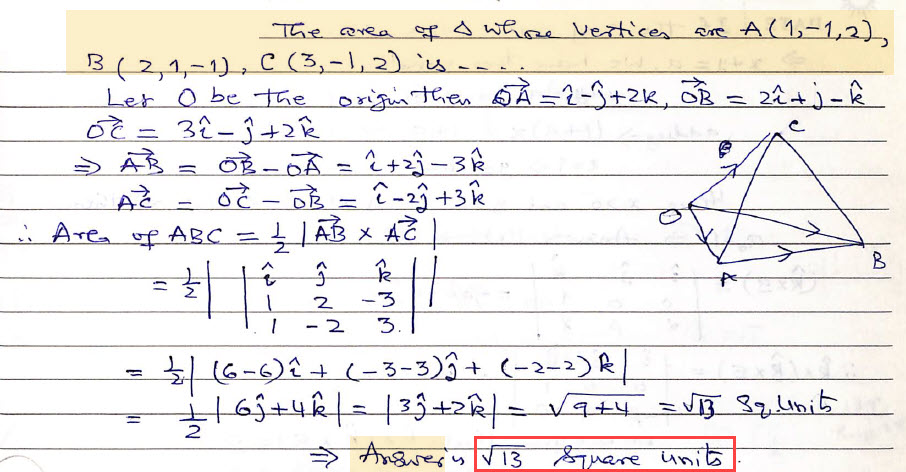 The area of Δ whose vertices are A(1,-1,2),
B(2,1,-1), C(3,-1,2) is ----.
Let O be the origin then OA⃗ = î-ĵ+2k, OB⃗ = 2î+j-k̂
OC⃗ = 3î-ĵ+2k̂
⇒ AB⃗ = OB⃗ - OA⃗ = î+2ĵ-3k̂
AC⃗ = OC⃗ - OB⃗ = î-2ĵ+3k̂
∴ Area of ABC = 1/2 |AB⃗ × AC⃗|
= 1/2 | | î ĵ k̂
1 2 -3
1 -2 3. | |
= 1/2 | (6-6)î + (-3-3)ĵ + (-2-2)k̂ |
= 1/2 | 6ĵ+4k̂ | = |3ĵ+2k̂| = √9+4 = √13 Sq.Units
⇒ Answer is √13 Square units.
C
O
A
B